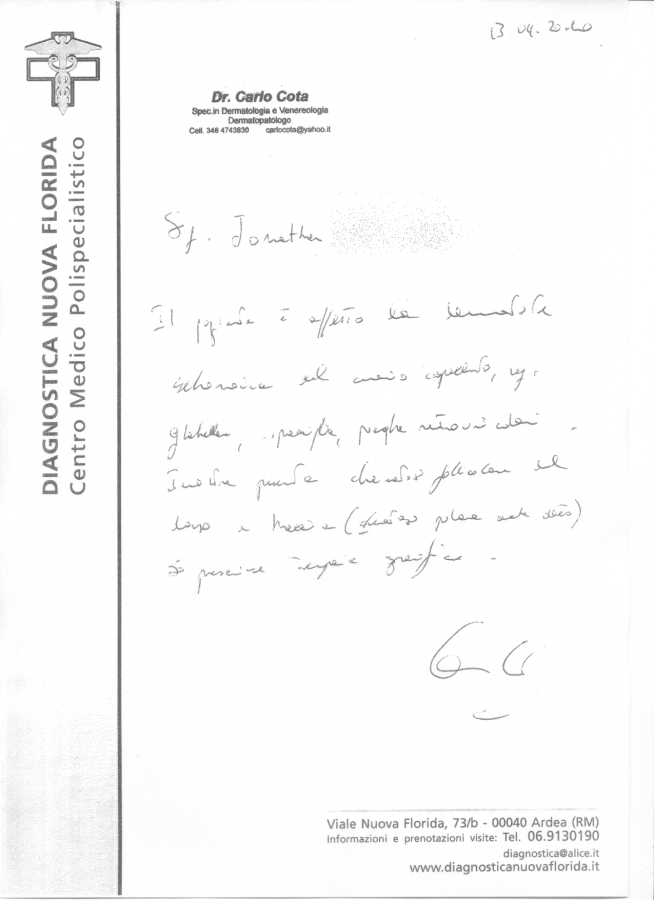 13.04.2010
DIAGNOSTICA NUOVA FLORIDA
Centro Medico Polispecialistico
Dr. Carlo Cota
Spec.in Dermatologia e Venereologia
Dermatopatologo
Cell. 348 4743830 carlocota@yahoo.it
Sg. Jonathan
Il paziente è affetto da dermatite
seborroica del cuoio capelluto, reg.
glabella, sopracciglia, pieghe
Inoltre presenta cheratosi follicolare del
dorso e braccia
Si prescrive terapia specifica.
Viale Nuova Florida, 73/b - 00040 Ardea (RM)
Informazioni e prenotazioni visite: Tel. 06.9130190
diagnostica@alice.it
www.diagnosticanuovaflorida.it